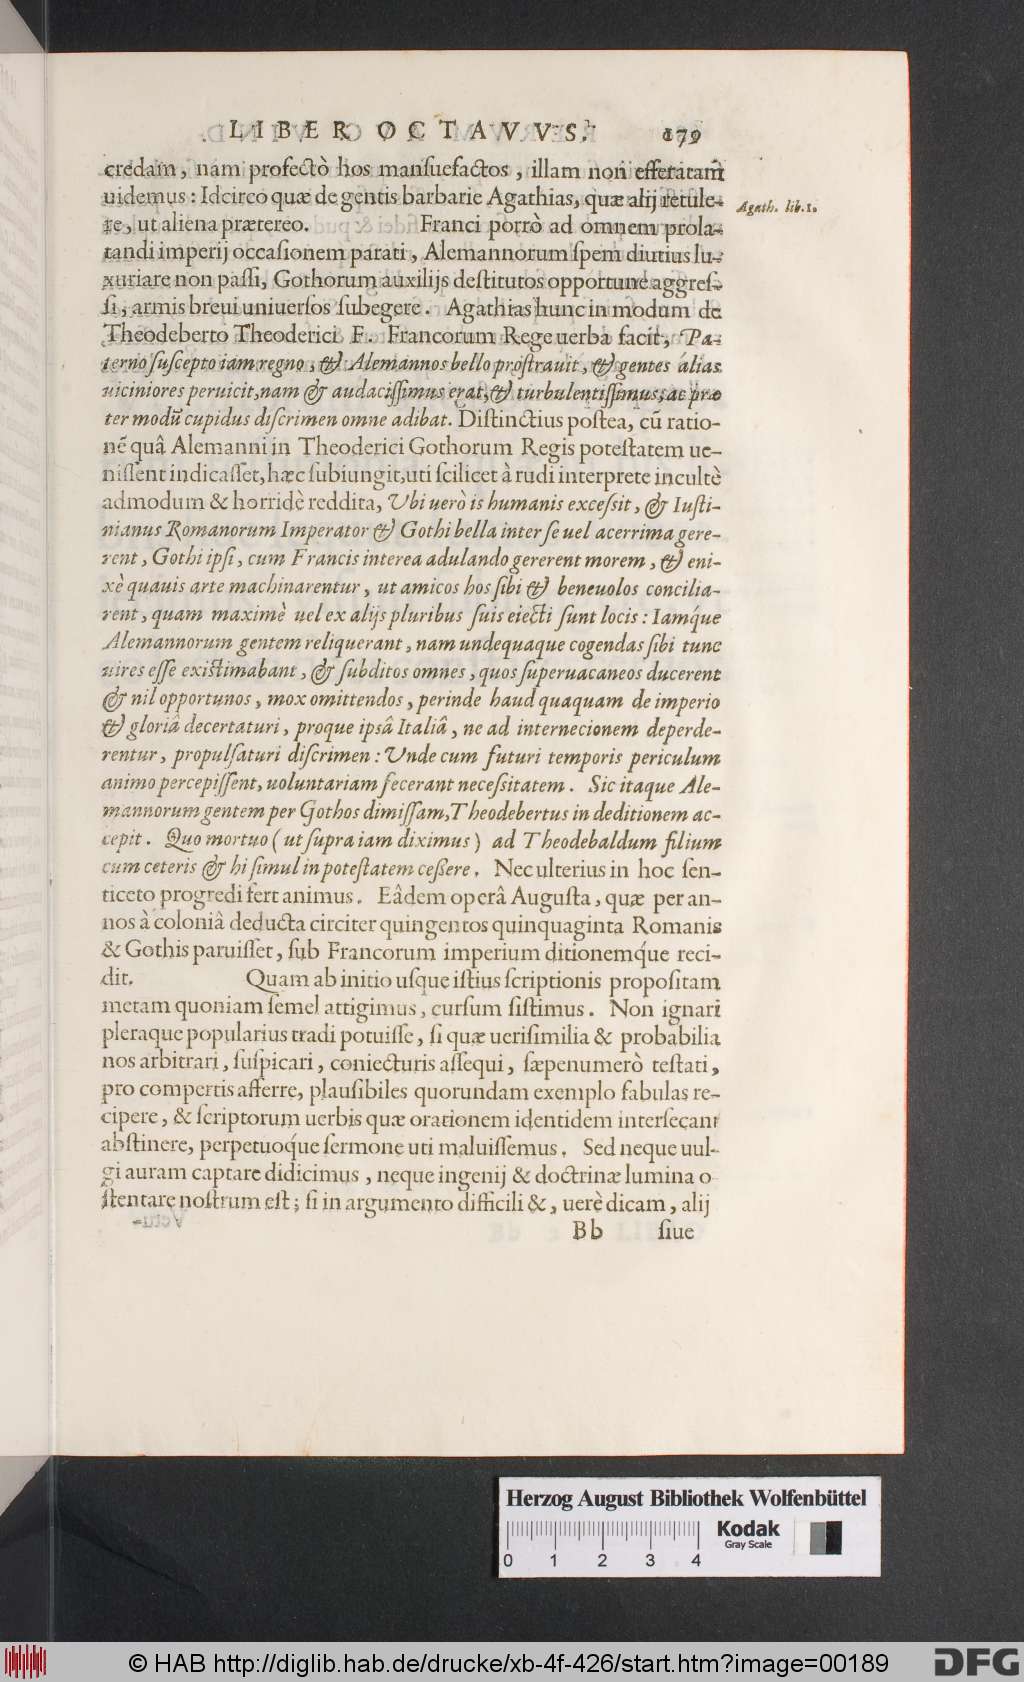 LIBER OCTAVVS. 179
credam, nam profectò hos manſuefactos, illam non efferatam
uidemus: Idcirco quæ de gentis barbarie Agathias, quæ alij retule-
re, ut aliena prætereo. Franci porrò ad omnem prola-
Agath. lib.1.
tandi imperij occaſionem parati, Alemannorum ſpem diutius lu-
xuriare non paſſi, Gothorum auxilijs deſtitutos opportune aggreſ-
ſi, armis breui uniuerſos ſubegere. Agathias hunc in modum de
Theodeberto Theoderici F. Francorum Rege uerba facit, Pa-
terno ſuſcepto iam regno, & Alemannos bello proſtrauit, & gentes alias
uiciniores peruicit, nam & audaciſſimus erat, & turbulentiſſimus, ac præ
ter modũ cupidus diſcrimen omne adibat. Diſtinctius poſtea, cũ ratio-
nẽ quâ Alemanni in Theoderici Gothorum Regis poteſtatem ue-
niſſent indicaſſet, hæc ſubiungit, uti ſcilicet à rudi interprete incultè
admodum & horridè reddita, Ubi uerò is humanis exceſsit, & Iuſti-
nianus Romanorum Imperator & Gothi bella inter ſe uel acerrima gere-
rent, Gothi ipſi, cum Francis interea adulando gererent morem, & eni-
xè quauis arte machinarentur, ut amicos hos ſibi & beneuolos concilia-
rent, quam maximè uel ex alijs pluribus ſuis eiecti ſunt locis: Iamq́ue
Alemannorum gentem reliquerant, nam undequaque cogendas ſibi tunc
uires eſſe exiſtimabant, & ſubditos omnes, quos ſuperuacaneos ducerent
& nil opportunos, mox omittendos, perinde haud quaquam de imperio
& gloriâ decertaturi, proque ipſâ Italiâ, ne ad internecionem deperde-
rentur, propulſaturi diſcrimen: Unde cum futuri temporis periculum
animo percepiſſent, uoluntariam fecerant neceſsitatem. Sic itaque Ale-
mannorum gentem per Gothos dimiſſam, Theodebertus in deditionem ac-
cepit. Quo mortuo (ut ſupra iam diximus) ad Theodebaldum filium
cum ceteris & hi ſimul in poteſtatem ceßere. Nec ulterius in hoc ſen-
ticeto progredi fert animus. Eâdem operâ Auguſta, quæ per an-
nos à coloniâ deducta circiter quingentos quinquaginta Romanis
& Gothis paruiſſet, ſub Francorum imperium ditionemq́ue reci-
dit. Quam ab initio uſque iſtius ſcriptionis propoſitam
metam quoniam ſemel attigimus, curſum ſiſtimus. Non ignari
pleraque popularius tradi potuiſſe, ſi quæ ueriſimilia & probabilia
nos arbitrari, ſuſpicari, coniecturis aſſequi, ſæpenumerò teſtati,
pro compertis afferre, plauſibiles quorundam exemplo fabulas re-
cipere, & ſcriptorum uerbis quæ orationem identidem interſecant
abſtinere, perpetuoq́ue ſermone uti maluiſſemus. Sed neque uul-
gi auram captare didicimus, neque ingenij & doctrinæ lumina o
ſtentare noſtrum eſt; ſi in argumento difficili &, uerè dicam, alij
Bb ſiue
Herzog August Bibliothek Wolfenbüttel
0 1 2 3 4
Kodak
Gray Scale
© HAB http://diglib.hab.de/drucke/xb-4f-426/start.htm?image=00189
DFG